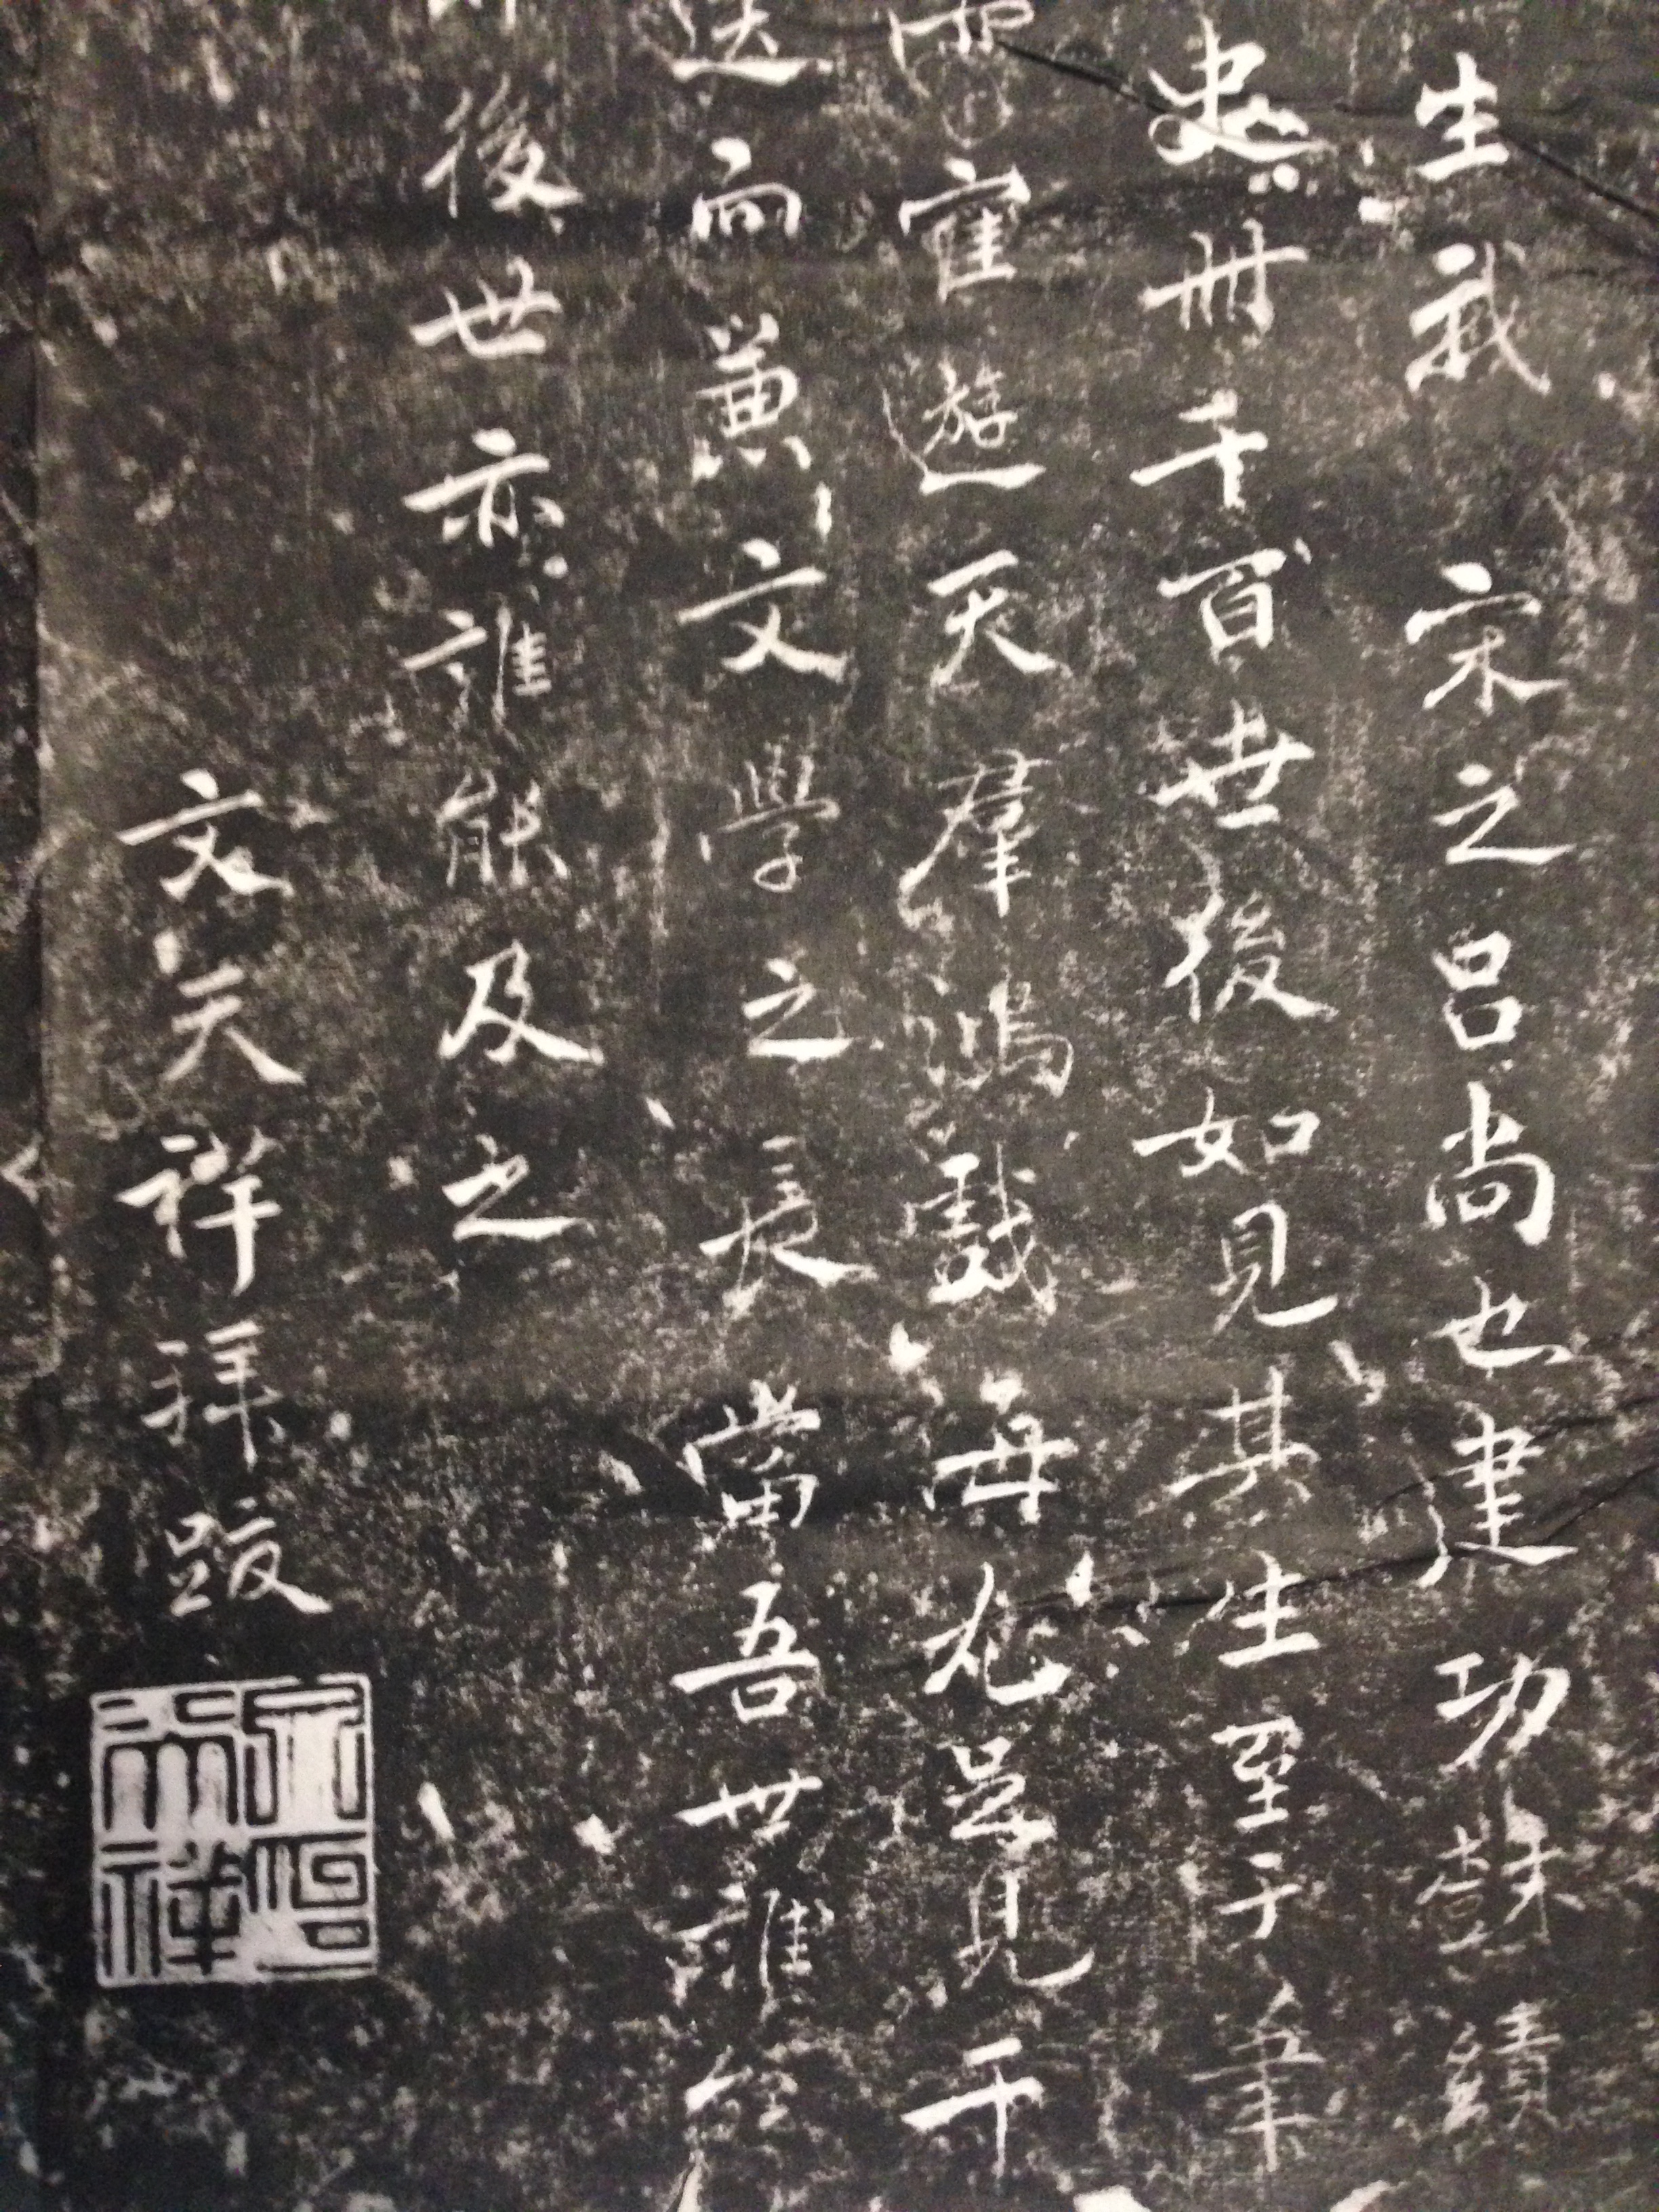 生我 宋之呂尚也建功鼓績
史冊千百世後如見其生至于筆
霍遊天群鴻戲海尤足見于
送向黄文學之長當吾世誰
後世亦誰能及之
文天祥拜跋